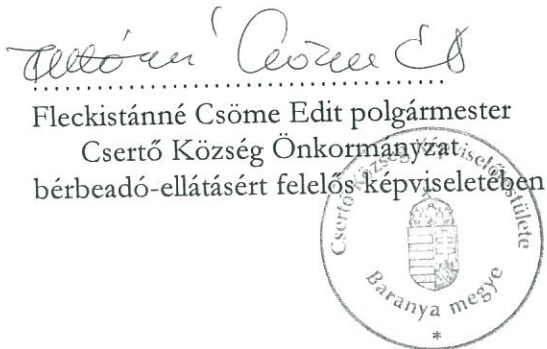 Fleckistánné Csöme Edit polgármester
Csertő Község Önkormányzat
bérbeadó-ellátásért felelős képviseletében
Csertő Község Képviselőtestülete
Baranya megye
*